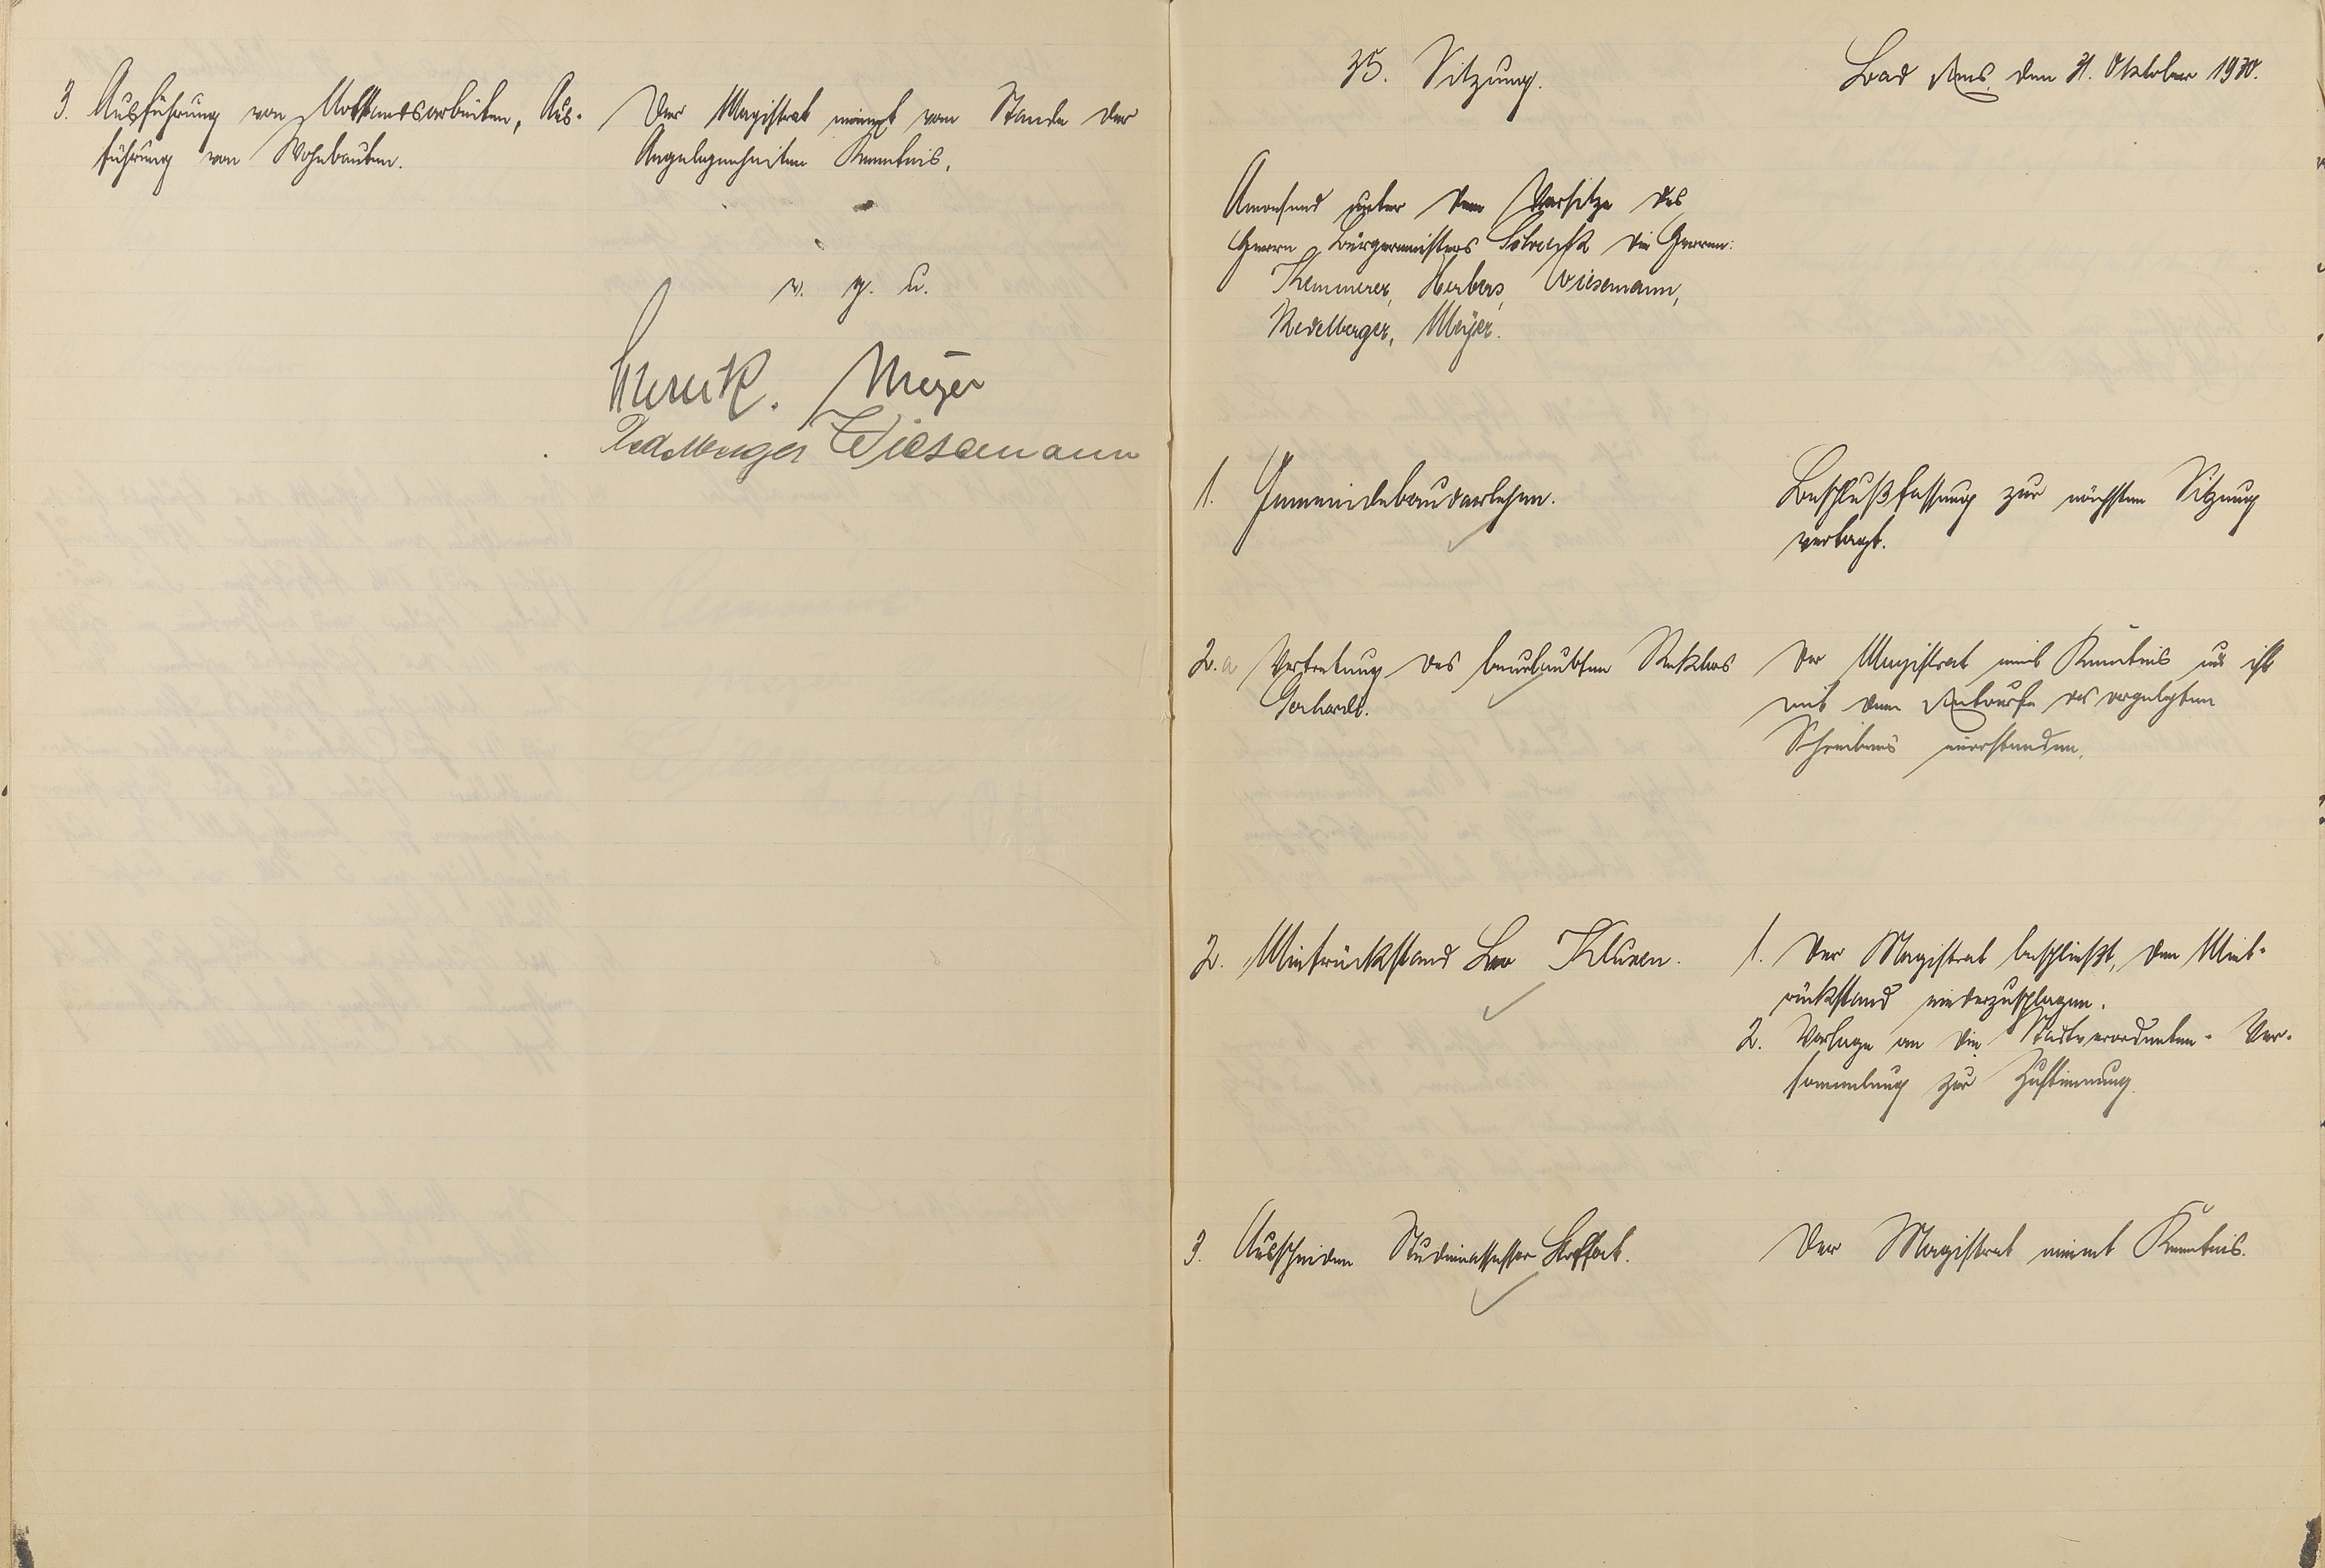 3. Ausführung von Notstandsarbeiten, Aus-
führung von Wohnbauten.
Der Magistrat nimmt vom Stande der
Angelegenheiten Kenntnis.
v. g. u.
Meyer
Wiesemann
35. Sitzung.
Bad Ems, den 31. Oktober 1930.
Anwesend unter dem Vorsitze des
Herrn Bürgermeisters die Herren:
Kemmerer, Herbers, Wiesemann,
Meyer.
1. Gemeindebaudarlehen.
Beschlußfassung zur nächsten Sitzung
vertagt.
2.a Vertretung des beurlaubten Rektors
Gerhardt.
Der Magistrat nimt Kentnis und ist
mit dem Entwurfe des vorgelegten
Schreibens einverstanden.
2. Mietrückstand Leo Klusen.
1. Der Magistrat beschließt, den Miet-
rückstand niederzuschlagen.
2. Vorlage an die Stadtverordneten-Ver-
sammlung zur Zustimmung.
3. Ausscheiden Studienassessor
Der Magistrat nimmt Kentnis.